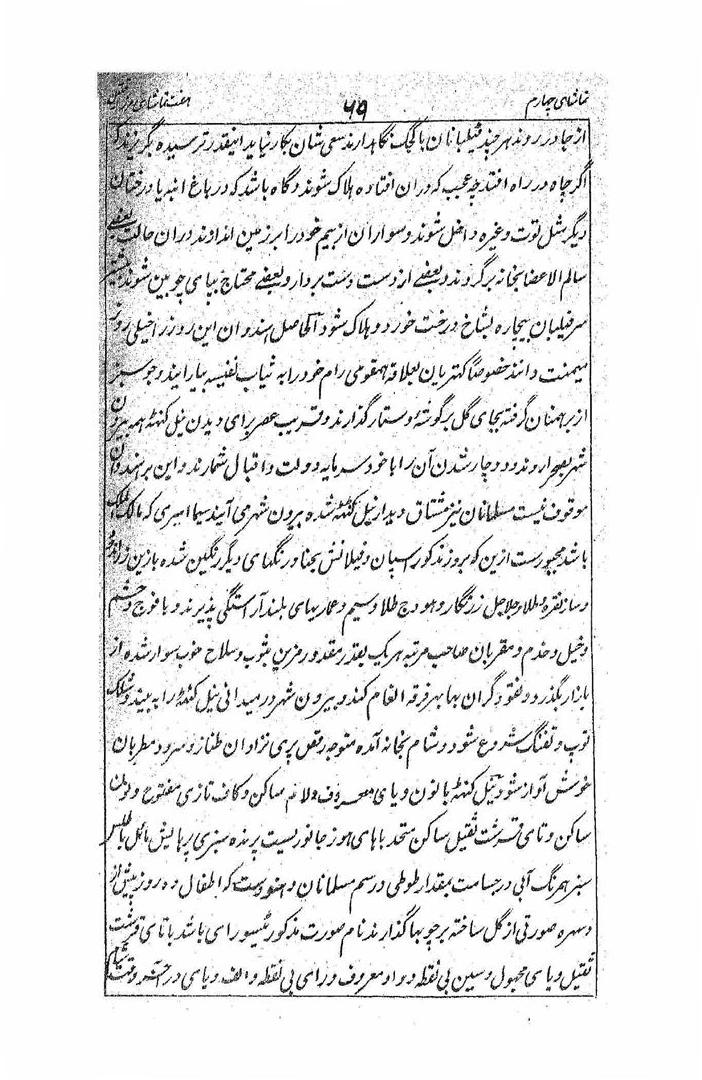 تماشای چهارم ۶۹ هفت تماشای مرزا قتیل
از جا در روند هر چند فیلبانان با کجک نگاهدارند سعی شان بکار نیاید اینقدر ترسیده بگریزند که
اگر چاه در راه افتد چه عجب که در ان افتاده هلاک شوند و گاه باشد که در باغ انبه یا درختان
دیگر مثل توت و غیره داخل شوند و سواران از بیم خود را بر زمین اندازند در ان حالت بعضی
سالم الاعضا بخانه برگردند و بعضے از دست دست بردار و بعضے محتاج بپای چوبین شوند بیشتر
سر فیلبان بیچاره بشاخ درخت خورد و هلاک شود الحاصل هندوان این روز را خیلی روز
میمنت دانند خصوصاً کهتریان بعلاقه همقومی رام خود را به ثیاب نفیسه بیارایند و جو سبز
از برهمنان گرفته بجای گل بر گوشهٔ دستار گذارند و قریب عصر برای دیدن نیل کنٹهه همه بیرون
شهر بصحرا روند و دوچار شدن آن را با خود سرمایه دولت و اقبال شمارند و این بر هندوان
موقوف نیست مسلمانان نیز مشتاق دیدار نیل کنٹهه شده بیرون شهر می آیند سیما امیری که مالک الملک
باشد مجبورست ازین که بروز مذکور اسپان و فیلانش بحنا و رنگهای دیگر رنگین شده با زین زراندود
و ساز نقره و طلا و جلاجل زرنگار و هودج طلا و سیم و عماریهای بلند آراستگی پذیرند و با فوج و حشم
و خیل و خدم و مقربان صاحب مرتبه هر یک بقدر مقدور مزین بثوب و سلاح خوب سوار شده از
بازار بگذرد و نقود گران بها بهر فرقه انعام کند و بیرون شهر در میدانی نیل کنٹهه را به بیند و شلک
توپ و تفنگ شروع شود و شام بخانه آمده متوجه رقص پری نژادان طناز و سرود مطربان
خوش آواز شود نیل کنٹهه با نون و یای معروف و لام ساکن و کاف تازی مفتوح و نون
ساکن و تای قرشت ثقیل ساکن متحد با های هوز جانوریست پرنده سبزی پرهایش مائل باطلس
سبز همرنگ آبی در جسامت بمقدار طوطی و رسم مسلمانان و هنودست که اطفال ده روز پیش از
دسهره صورتی از گل ساخته بر چوبها گذارند نام صورت مذکور ٹیسورای باشد با تای قرشت
ثقیل و یای مجهول و سین بی نقطه و واو معروف و رای بی نقطه و الف و یای در آخر وقت شام